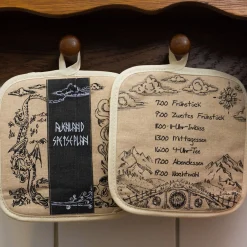 AUENLAND
SPEISEPLAN
7.00 Frühstück
9.00 Zweites Frühstück
11.00 11-Uhr-Imbiss
13.00 Mittagessen
16.00 4-Uhr-Tee
17.00 Abendessen
19.00 Nachtmahl